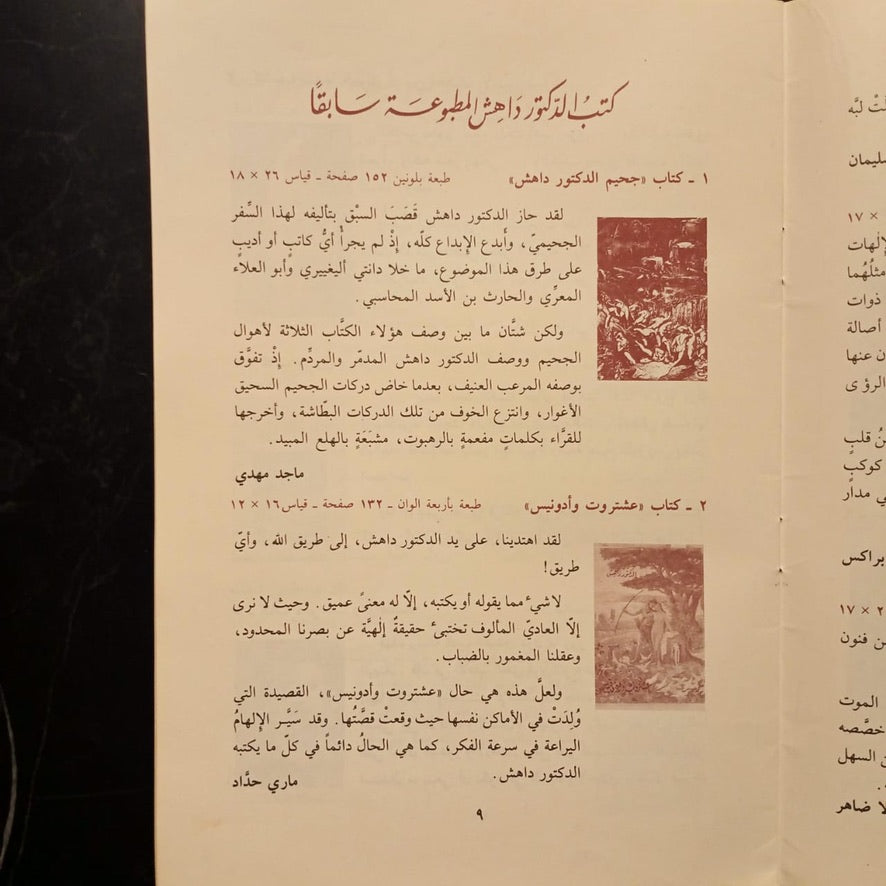 كتبُ الدّكتور دَاهِش المطبوعَة سَابقًا
١ ـ كتاب «جحيم الدكتور داهش» طبعة بلونين ١٥٢ صفحة ـ قياس ٢٦ × ١٨
لقد حاز الدكتور داهش قَصَبَ السبْق بتأليفه لهذا السِّفر
الجحيميّ، وأَبدع الإبداع كلّه، إذْ لم يجرأْ أيُّ كاتبٍ أو أديبٍ
على طرق هذا الموضوع، ما خلا دانتي أليغييري وأبو العلاء
المعرِّي والحارث بن الأسد المحاسبي.
ولكن شتَّان ما بين وصف هؤلاء الكتَّاب الثلاثة لأهوال
الجحيم ووصف الدكتور داهش المدمّر والمردِّم. إذْ تفوَّق
بوصفه المرعب العنيف، بعدما خاض دركات الجحيم السحيق
الأغوار، وانتزع الخوف من تلك الدركات البطّاشة، وأخرجها
للقرَّاء بكلماتٍ مفعمةٍ بالرهبوت، مشبَعَةٍ بالهلع المبيد.
ماجد مهدي
٢ ـ كتاب «عشتروت وأدونيس» طبعة بأربعة الوان ـ ١٣٢ صفحة ـ قياس ١٦ × ١٢
لقد اهتدينا، على يد الدكتور داهش، إلى طريق اللّه، وأيّ
طريق!
لاشيء مما يقوله أو يكتبه، إلّا له معنىً عميق. وحيث لا نرى
إلّا العاديّ المألوف تختبىء حقيقةٌ إلٰهيَّة عن بصرنا المحدود،
وعقلنا المغمور بالضباب.
ولعلَّ هذه هي حال «عشتروت وأدونيس»، القصيدة التي
وُلِدَتْ في الأماكن نفسها حيث وقعتْ قصَّتُها. وقد سَيَّر الإلهامُ
اليراعة في سرعة الفكر، كما هي الحالُ دائماً في كلّ ما يكتبه
الدكتور داهش.
ماري حدَّاد
٩
لبَّه
سليمان
× ١٧
مثلُهُما
ذوات
أصالة
عنها
الرؤى
قلبٍ
كوكبٍ
مدار
براكس
× ١٧
فنون
الموت
خصَّصه
السهل
ضاهر